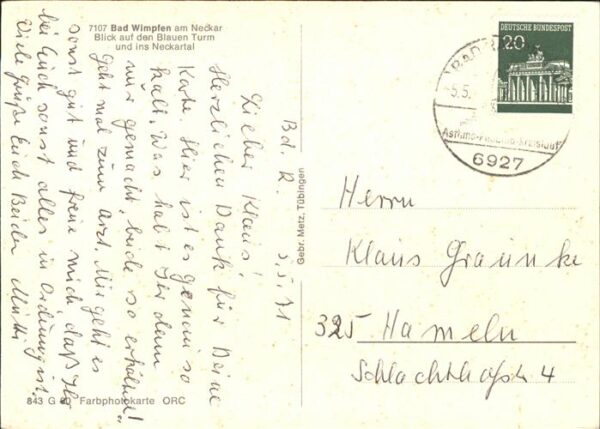 7107 Bad Wimpfen am Neckar
Blick auf den Blauen Turm
und ins Neckartal
Bd. R. 5.5.71
Lieber Klaus!
Herzlichen Dank für Deine
Karte. Hier ist es genau so
kalt. Was habt Ihr denn
nur gemacht, beide so erkältet!
Geht mal zum Arzt. Mir geht es
sonst gut und freue mich, daß
bei Euch sonst alles in Ordnung ist.
Viele Grüße Euch Beiden Mutti
843 G 80 Farbphotokarte ORC
Gebr. Metz, Tübingen
DEUTSCHE BUNDESPOST
20
BAD
5.5.
6927
Herrn
Klaus Graunke
325 Hameln
Schlachthofstr. 4